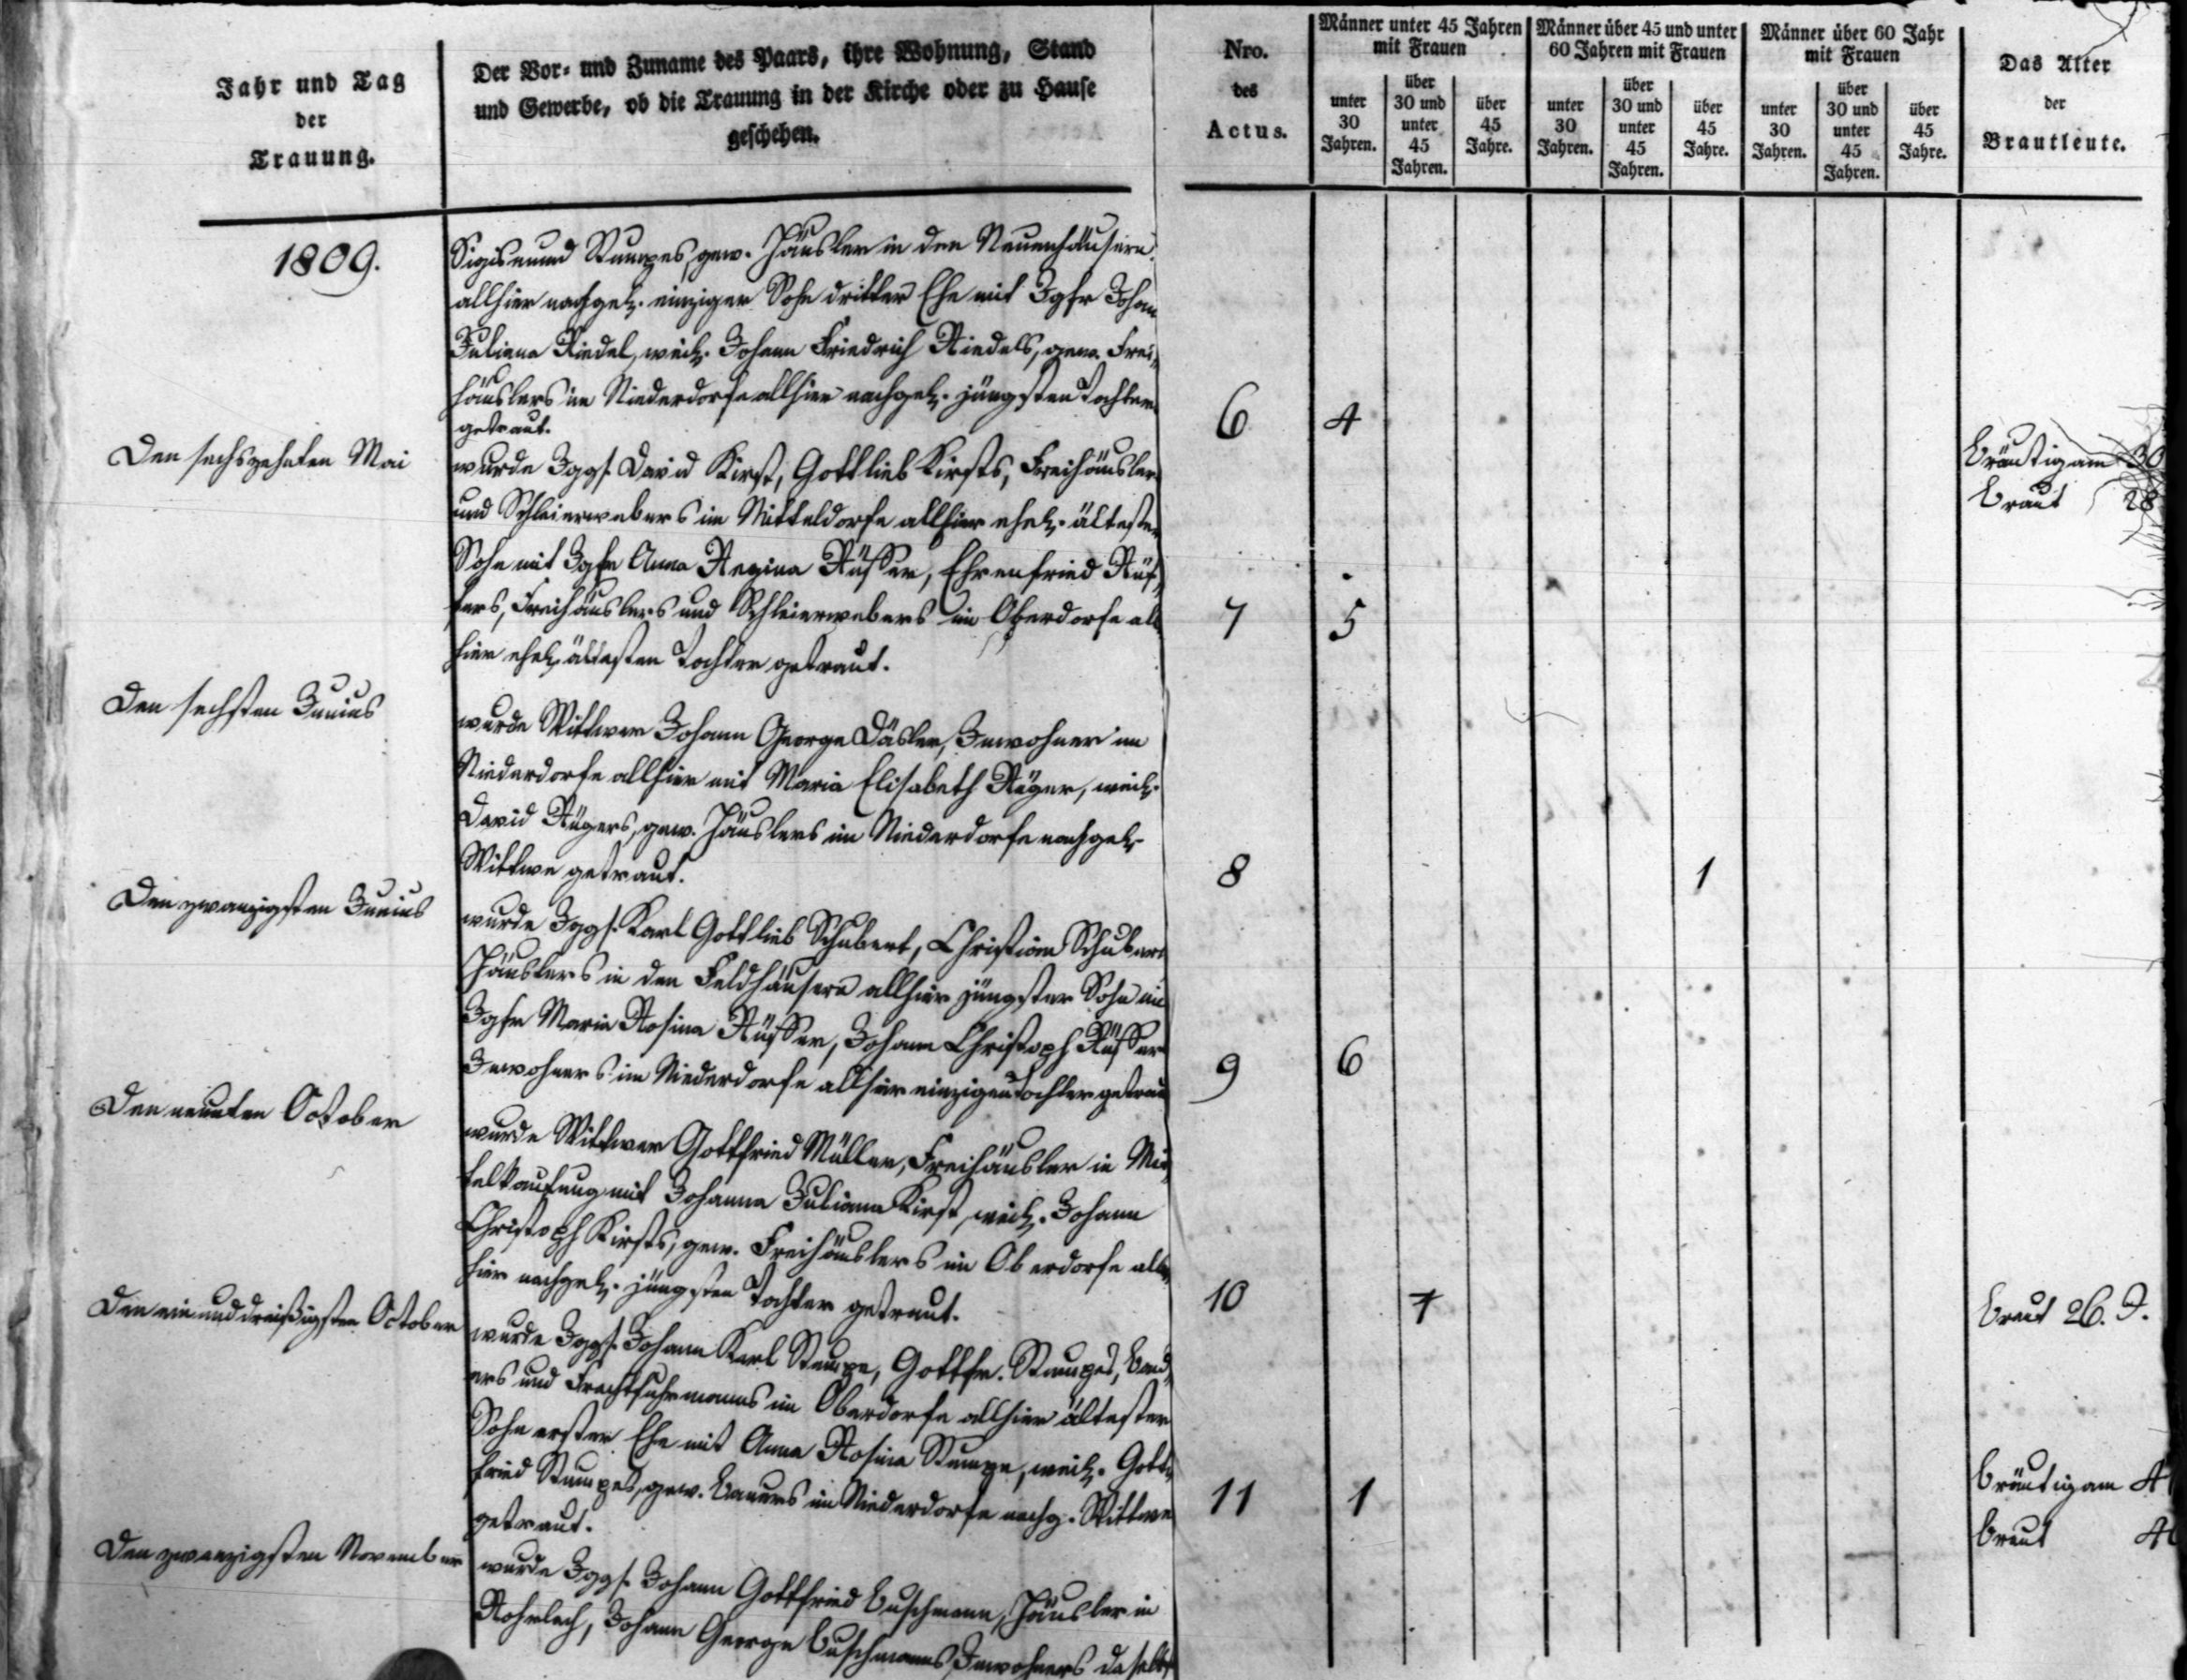 Jahr und Tag
der
Trauung.
Der Vor- und Zuname des Paars, ihre Wohnung, Stand
und Gewerbe, ob die Trauung in der Kirche oder zu Hause
geschehen.
Nro.
des
Actus.
Männer unter 45 Jahren
mit Frauen
unter
30
Jahren.
über
30 und
unter
45
Jahren.
über
45
Jahre.
Männer über 45 und unter
60 Jahren mit Frauen
unter
30
Jahren.
über
30 und
unter
45
Jahren.
über
45
Jahre.
Männer über 60 Jahr
mit Frauen
unter
30
Jahren.
über
30 und
unter
45
Jahren.
über
45
Jahre.
Das Alter
der
Brautleute.
1809.
Sigismund Stumpes, gew. Häusler in den Neuenhäusern
allhier nachgel. einziger Sohn dritter Ehe mit Jgfr Johan
Juliana Riedel, weil. Johann Friedrich Riedels, gew. Frei
häuslers im Niederdorfe allhier nachgel. jüngsten Tochter
getraut.
6 4
Den sechszehnten Mai
wurde Jggs. David Kirst, Gottlieb Kirsts, Freihäusler
und Schleierwebers im Mitteldorfe allhier ehel. ältester
Sohn mit Jgfr Anna Regina Rüffer, Ehrenfried Rüf
fers, Freihäuslers und Schleierwebers im Oberdorfe all
hier ehel. ältesten Tochter getraut.
7 5
Bräutigam 30
Braut 28
Den sechsten Junius
wurde Wittwer Johann George Däsler, Inwohner im
Niederdorfe allhier mit Maria Elisabeth Rüger, weil.
David Rügers, gew. Häuslers im Niederdorfe nachgel.
Wittwe getraut.
8 1
Den zwanzigsten Junius
wurde Jggs. Karl Gottlieb Schubert, Christian Schubert
Häuslers in den Feldhäusern allhier jüngster Sohn mi
Jgfr Maria Rosina Rüffer, Johann Christoph Rüffer
Inwohners im Niederdorfe allhier einzigen Tochter getraut
9 6
Den neunten October
wurde Wittwer Gottfried Müller, Freihäusler in Mit
telkaufung mit Johanna Juliana Kirst, weil. Johann
Christoph Kirsts, gew. Freihäuslers im Oberdorfe all
hier nachgel. jüngsten Tochter getraut.
10
Braut 26. J.
Den ein und dreißigsten October
wurde Jggs. Johann Karl Stumpe, Gottfr. Stumpes,
ers und Frachtfuhrmanns im Oberdorfe allhier ältester
Sohn erster Ehe mit Anna Rosina Stumpe, weil. Gott
fried Stumpes, gew. Bauers im Niederdorfe nachg. Wittwe
getraut.
11 1
Bräutigam
Braut
Den zwanzigsten November
wurde Jggs. Johann Gottfried Buschmann, Häusler in
Rohrlach, Johann George Buschmanns Inwohners daselbst